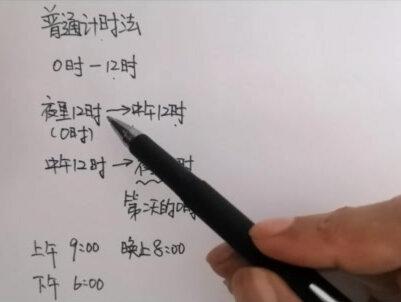 普通计时法
0时-12时
夜里12时→中午12时
(0时)
中午12时→ 时
第二天的0时
上午 9:00 晚上8:00
下午 6:00